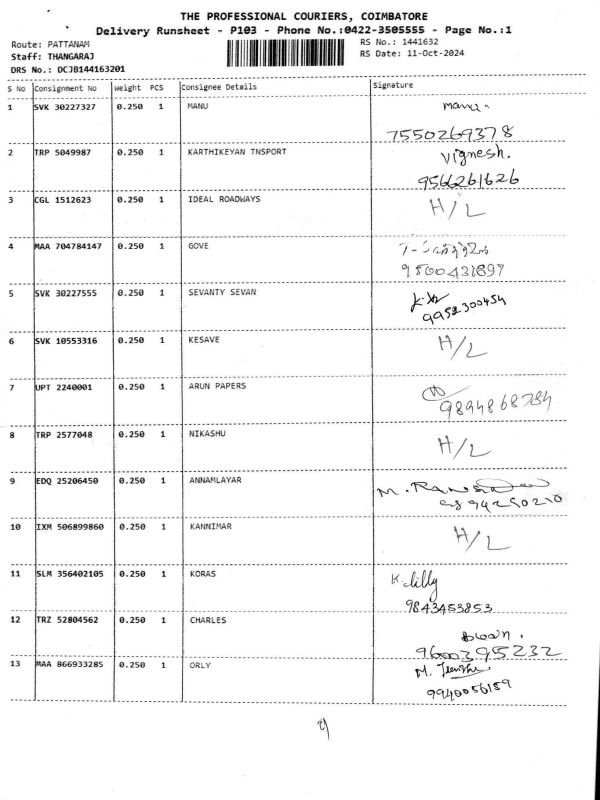 THE PROFESSIONAL COURIERS, COIMBATORE
Delivery Runsheet - P103 - Phone No.:0422-3505555 - Page No.:1
Route: PATTANAM
RS No.: 1441632
Staff: THANGARAJ
RS Date: 11-Oct-2024
DRS No.: DCJB144163201
S No Consignment No Weight PCS Consignee Details Signature
1 SVK 30227327 0.250 1 MANU manu.
7550269378
2 TRP 5049987 0.250 1 KARTHIKEYAN TNSPORT Vignesh.
9566261626
3 CGL 1512623 0.250 1 IDEAL ROADWAYS H/L
4 MAA 704784147 0.250 1 GOVE
9500431897
5 SVK 30227555 0.250 1 SEVANTY SEVAN
9952300454
6 SVK 10553316 0.250 1 KESAVE H/L
7 UPT 2240001 0.250 1 ARUN PAPERS
9894868784
8 TRP 2577048 0.250 1 NIKASHU H/L
9 EDQ 25206450 0.250 1 ANNAMLAYAR M.
10 IXM 506899860 0.250 1 KANNIMAR H/L
11 SLM 356402105 0.250 1 KORAS K. lilly
9843453853
12 TRZ 52804562 0.250 1 CHARLES
9600395232
13 MAA 866933285 0.250 1 ORLY M.
9940056159